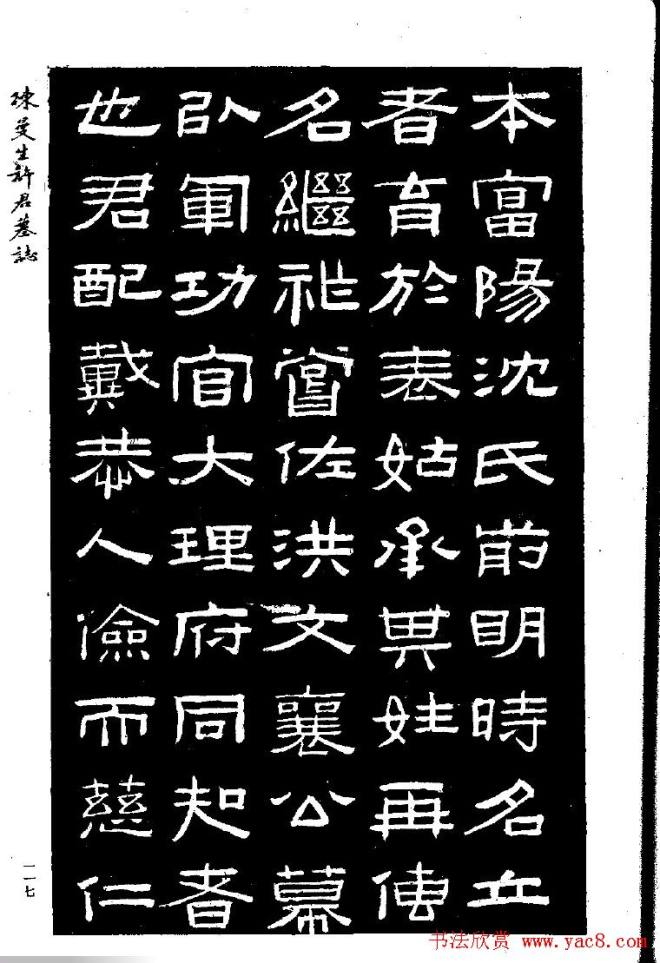 本富陽沈氏前明時名丘
者育於表姑承其姓再傳
名繼祉嘗佐洪文襄公幕
以軍功官大理府同知者
也君配戴恭人儉而慈仁
陳曼生許君墓誌
一一七
书法欣赏 www.yac8.com